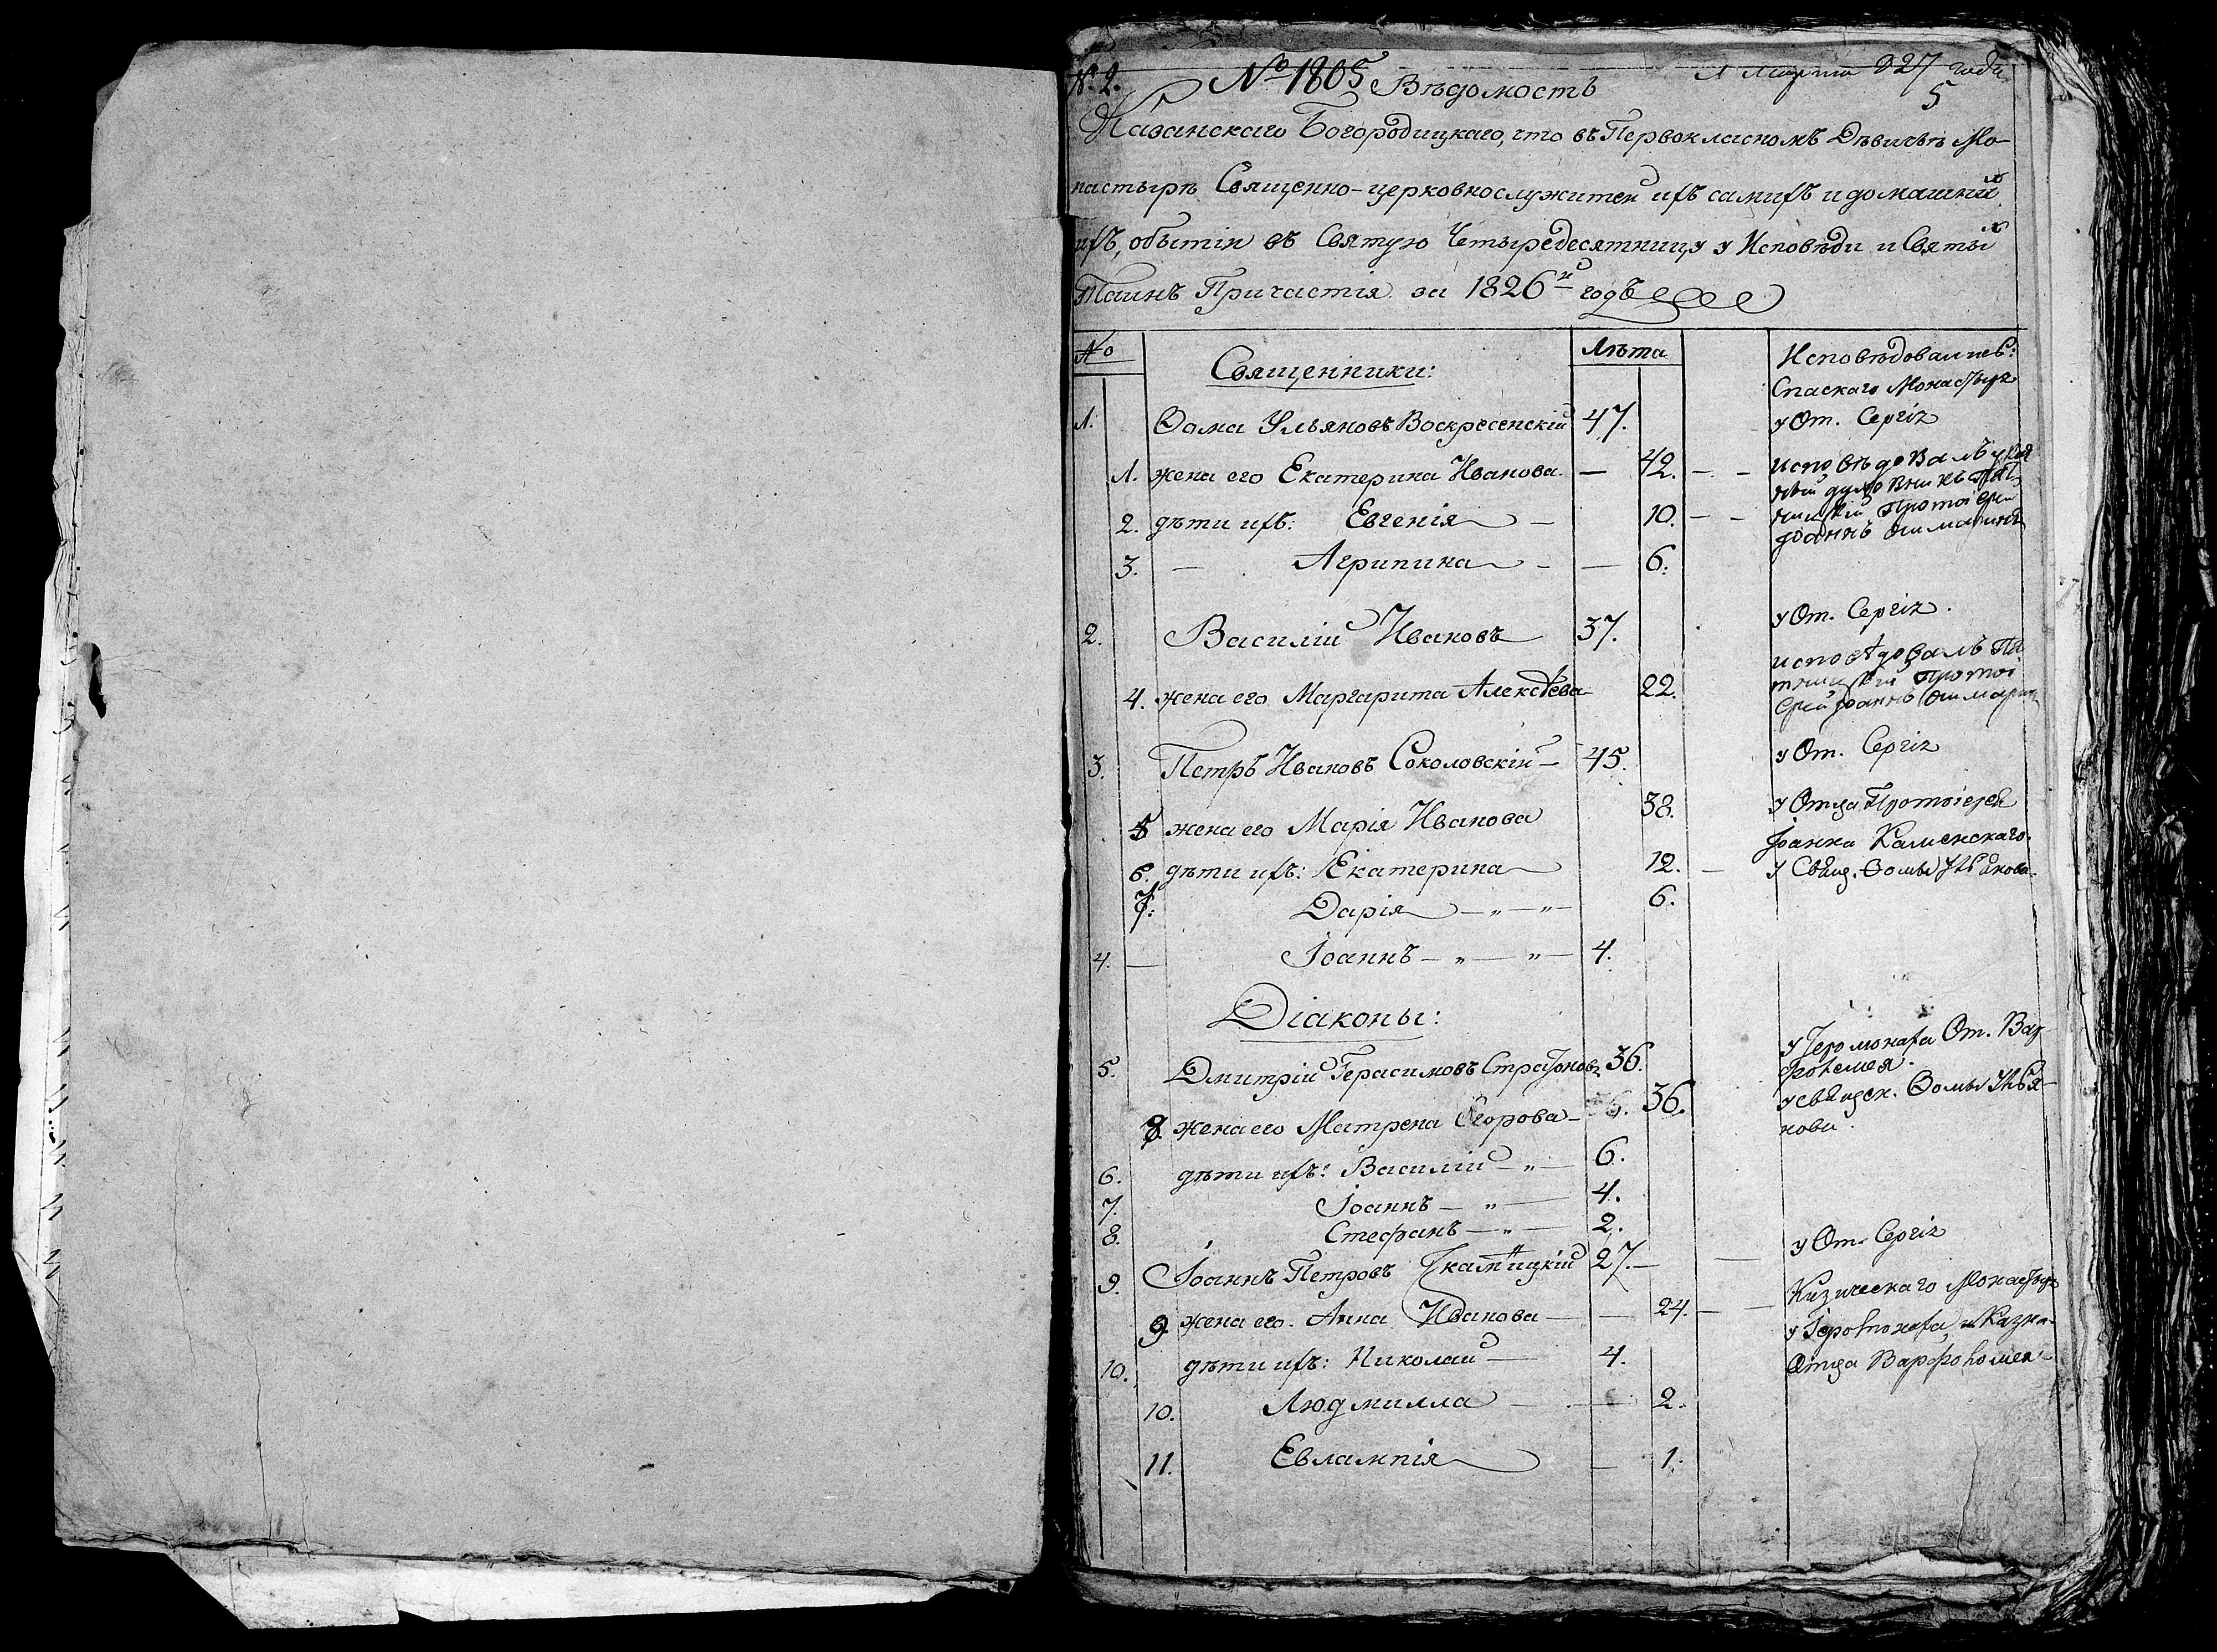 № 2. № 1805 Вѣдомость 11 Марта 827 года
5
Казанскаго Богородицкаго, что въ Первокласномъ Дѣвичьѣ Мо-
настырѣ Священно-церковнослужител ихъ самихъ и домашних
ихъ, обытіи въ Святую Четыредесятницу у Исповѣди и Святых
Таинъ Причастія за 1826й годъ
№ Священники: Лѣта Исповѣдовались:
Спаскаго Монастыря
1. Ѳома Ульяновъ Воскресенскій 47. у От. Сергія
1. жена его Екатерина Иванова — 42. — — исповѣдовалъ
2. дѣти ихъ: Евгенія — 10. — — Протоіерей
Іоаннъ
3. — Агрипина — — 6.
2. Василій Ивановъ 37. у От. Сергія.
исповѣдовалъ Пя
4. жена его Маргарита Алексѣева 22. тницкій Протоі
ерей Іоаннъ
3. Петръ Ивановъ Соколовскій — 45. у От. Сергія
5 жена его Марія Иванова 38. у Отца Протоіерея
Іоанна Каменскаго.
6. дѣти ихъ: Екатерина 12. — у Свящ. Ѳомы Ульянова.
7. Дарія — „ — „ — 6.
4. — Іоаннъ — „ — „ — 4.
Діаконы:
5. Дмитрій Герасимовъ Стратоновъ 36. у Іеромонаха От. Вар
фоломея.
8 жена его Матрена Егорова — 36. у священ. Ѳомы Улья-
нова.
6. дѣти ихъ: Василій — „ — 6.
7. Іоаннъ — „ — 4.
8. Стефанъ — „ — 2.
9. Іоаннъ Петровъ 27. — — у От. Сергія
9 жена его. Анна Иванова — — 24. — — Кизическаго Монастыря
у Іеромонаха и Казна.
10. дѣти ихъ: Николай — 4. Отца Варфоломея
10. Людмилла — — 2.
11. Евлампія — 1.